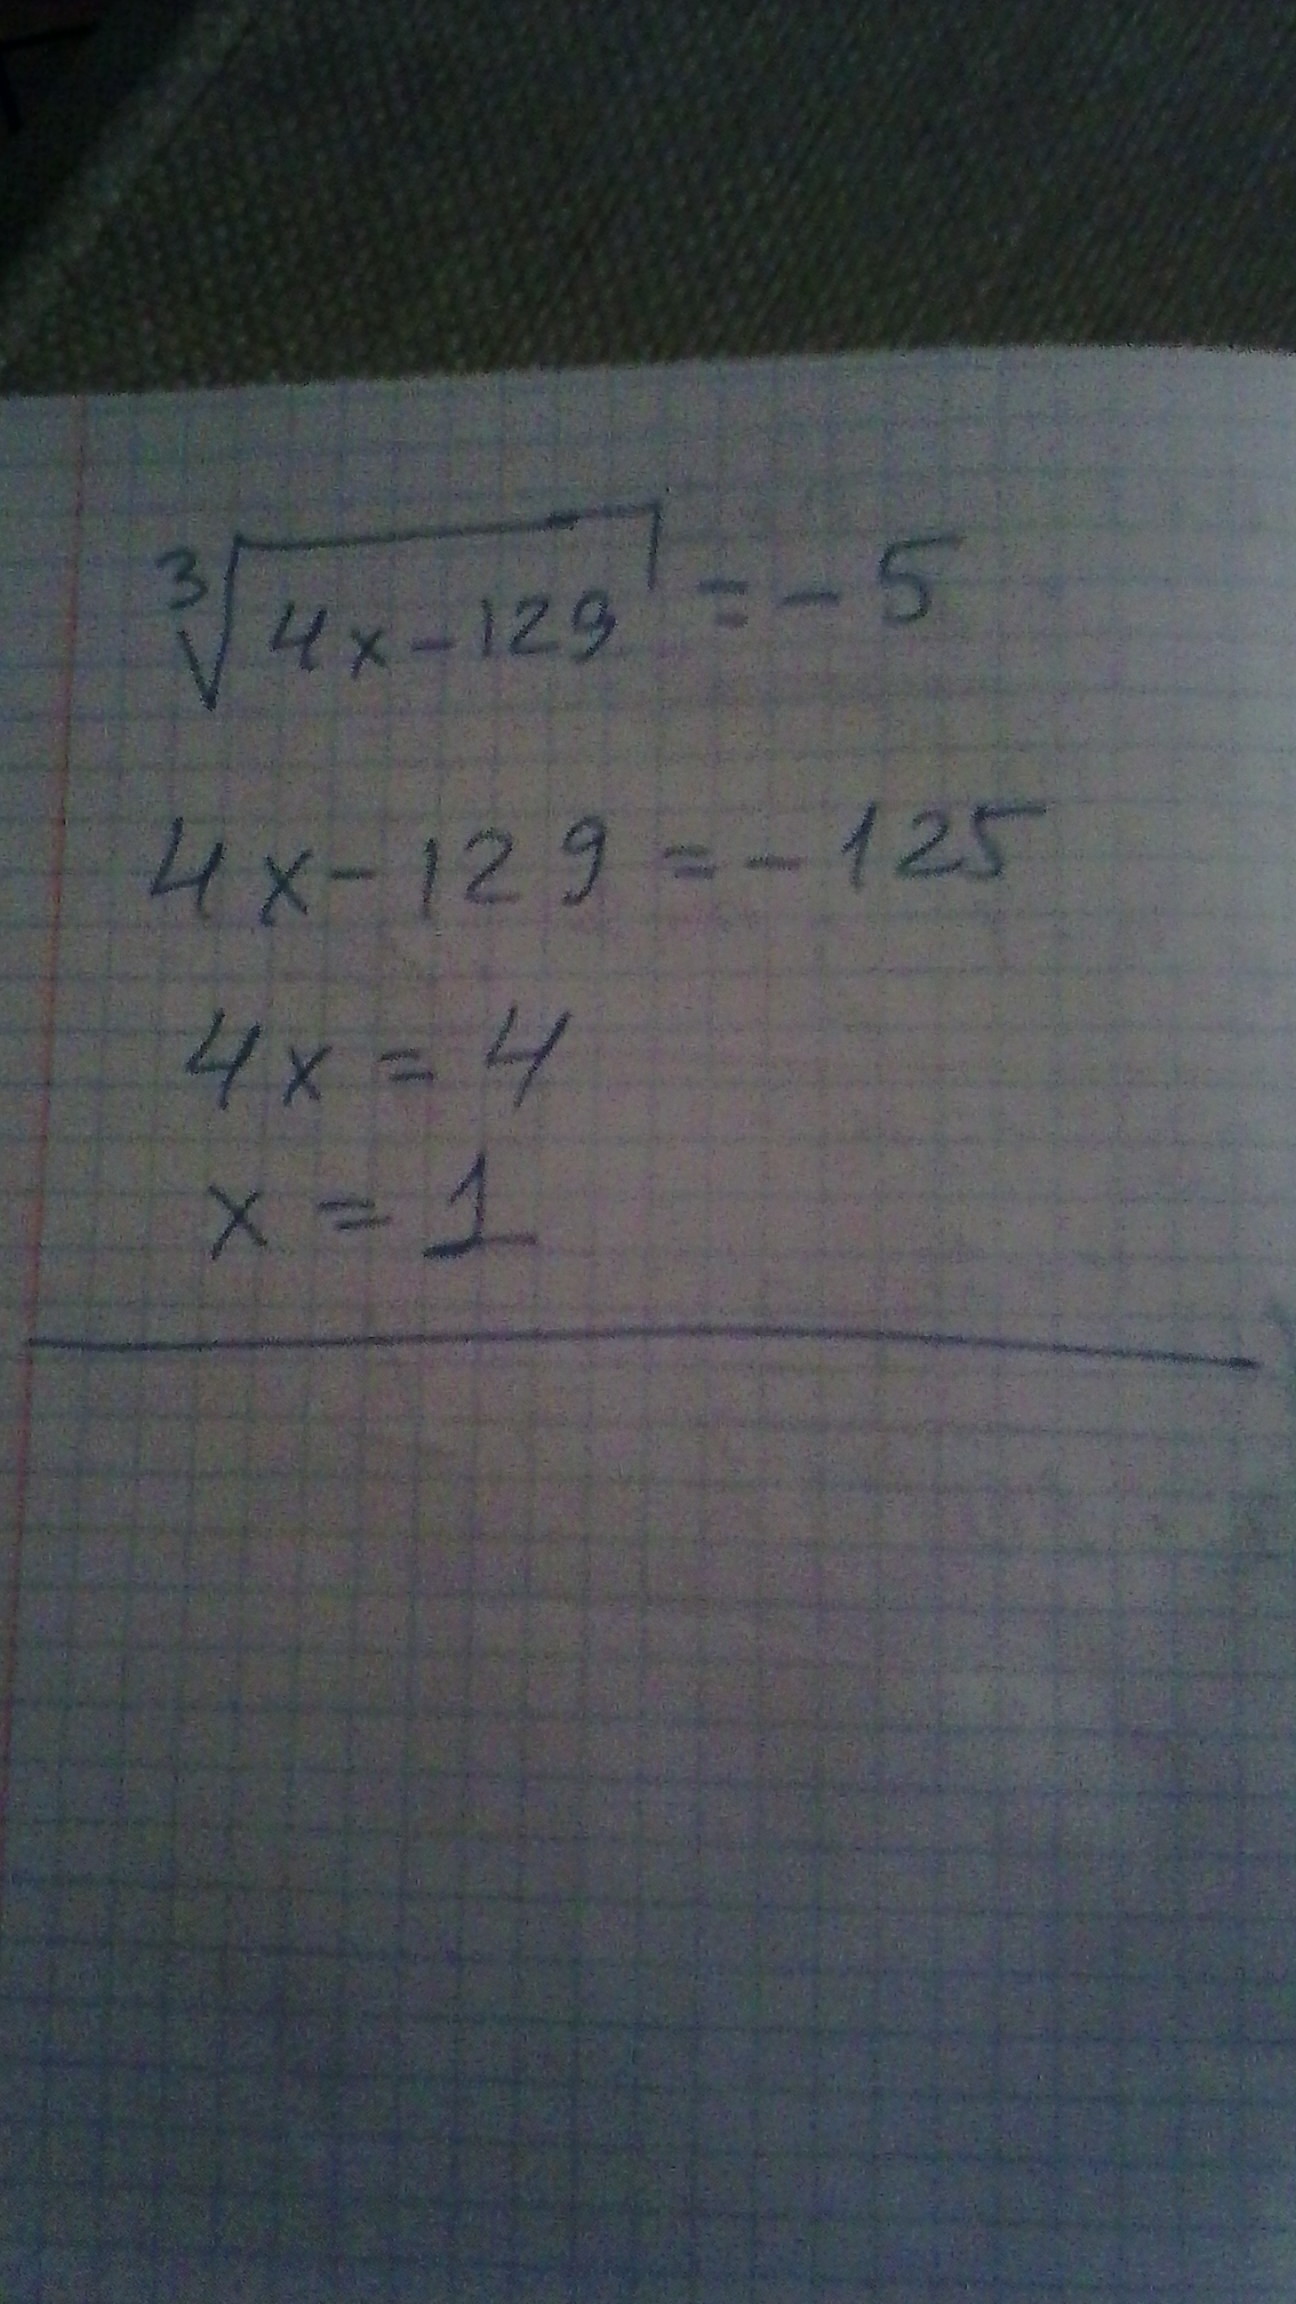 ∛(4x-129) = -5
4x-129 = -125
4x = 4
x = 1